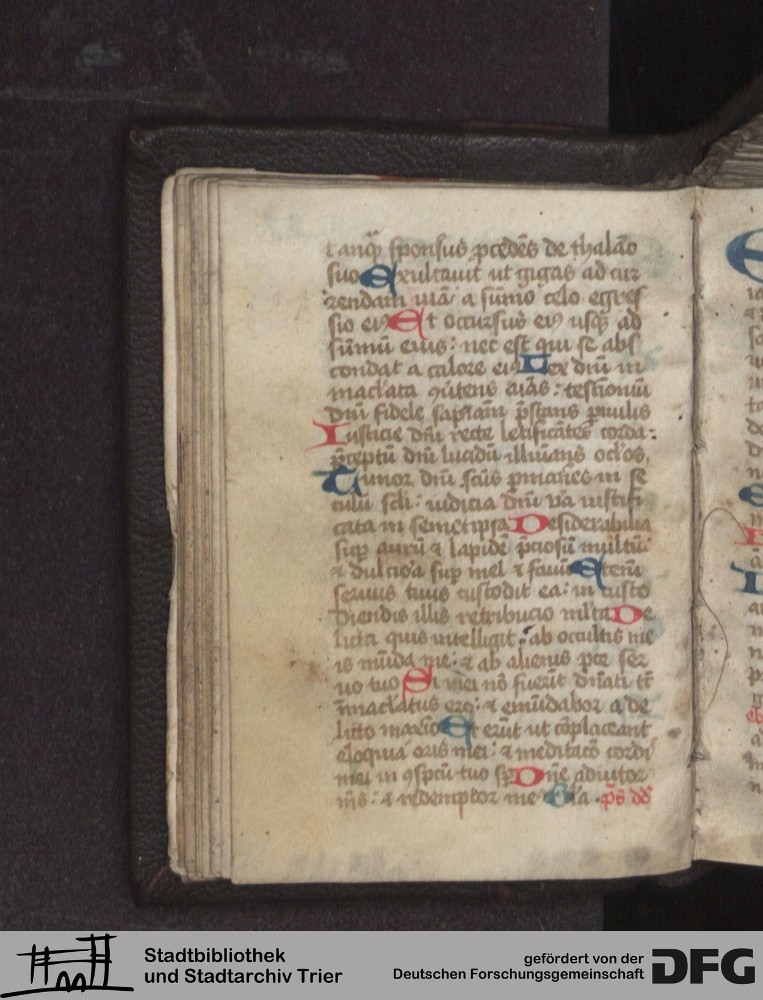 tanq̄ sponsus ꝓcedēs de thalāo
suo Exultauit ut gigas ad cur
rendam uiā a sūmo celo egres
sio eiꝰ Et occursus eiꝰ usq̄ ad
sūmū eius: nec est qui se abs
condat a calore eiꝰ Lex dn̄i in
maclata ꝯūtens aīas: testioniū
dn̄i fidele sapiām p̄stans ꝑuulis
Iusticie dn̄i recte letificātes corda:
p̄ceptū dn̄i lucidū illuīans oclos.
Timor dn̄i scūs ꝑmanēs in se
culū scli: iudicia dn̄i ua iustifi
cata in semetipsa Desiderabilia
suꝑ aurū ⁊ lapidē p̄ciosū multū:
⁊ dulcioa suꝑ mel ⁊ fauū Etem̄
seruus tuus custodit ea: in custo
diendis illis retribucio mlta De
licta quis intelligit: ab occultis me
is mūda me: ⁊ ab alienis pce ser
uo tuo Si mei nō fuerīt dn̄ati tc̄
īmaclatus ero: ⁊ emūdabor a de
licto maxīo Et erūt ut cōplaceant
eloquia oris mei: ⁊ meditacō cordis
mei in ꝯspcū tuo sꝑ Dn̄e adiutor
m̄s: ⁊ redemptor meꝰ Gla . p̄s dd
Stadtbibliothek
und Stadtarchiv Trier
gefördert von der
Deutschen Forschungsgemeinschaft
DFG